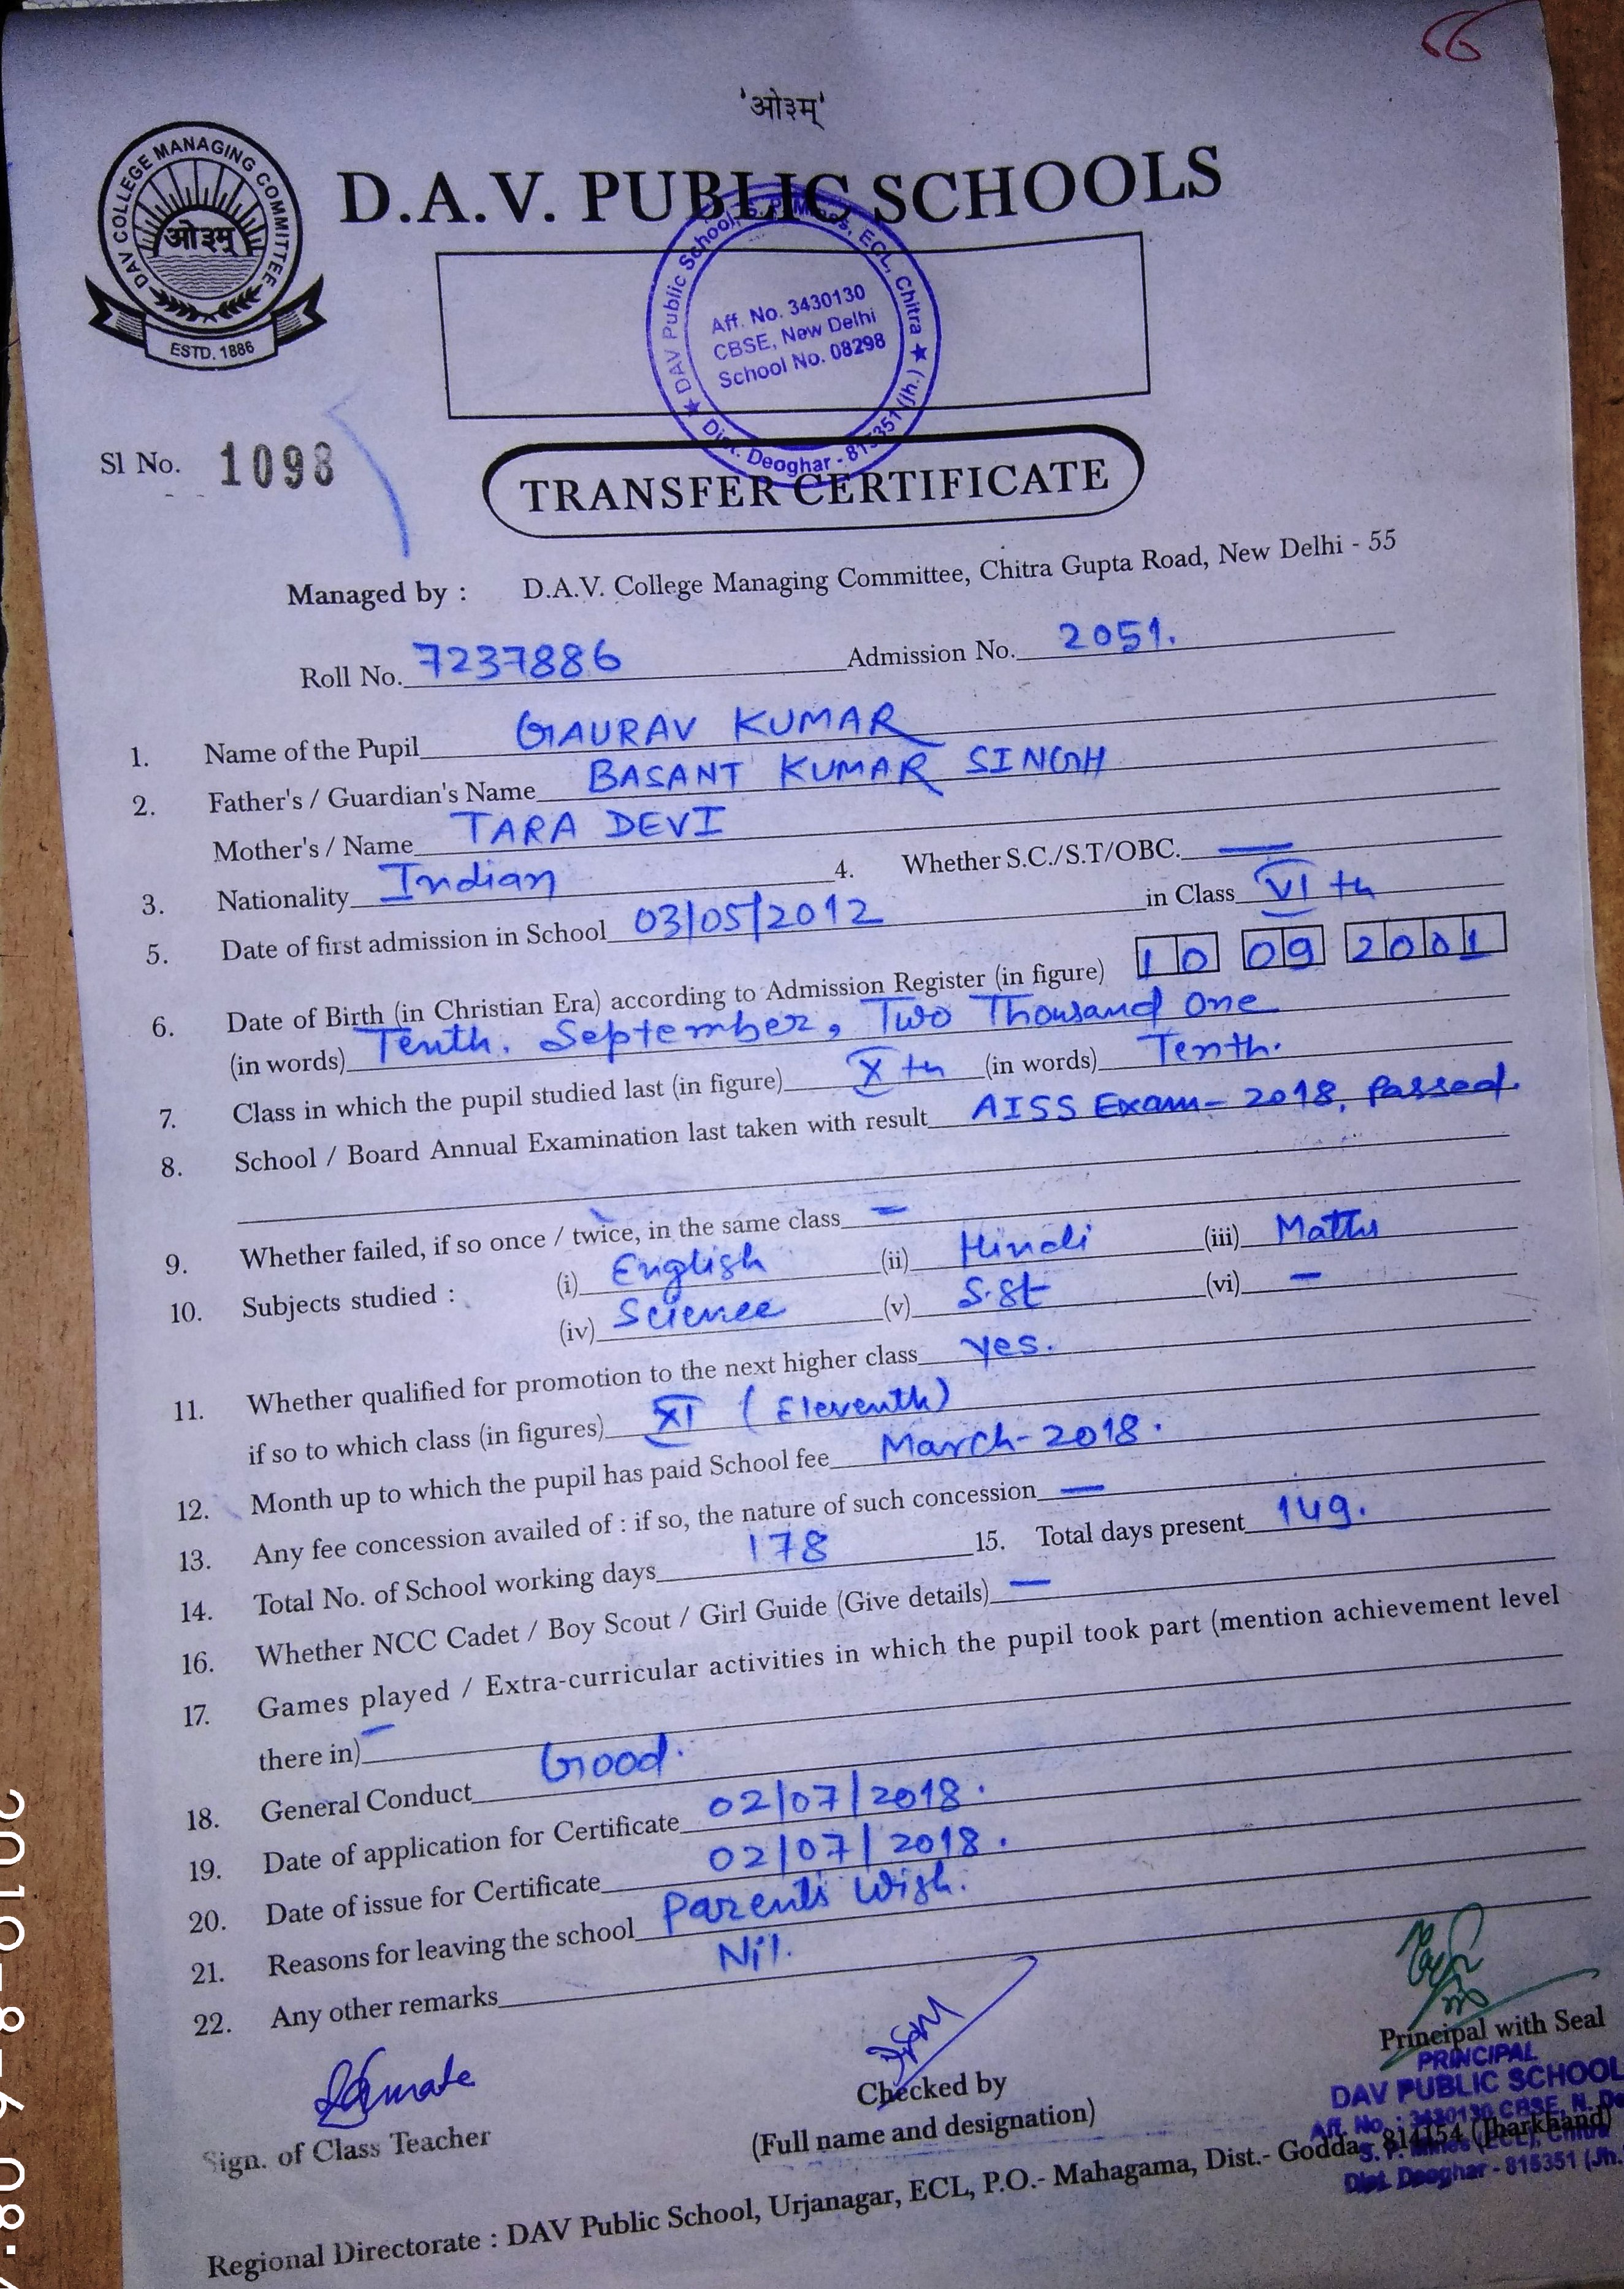 66
'ओ३म्'
DAV COLLEGE MANAGING COMMITTEE
ओ३म्
ESTD. 1886
D.A.V. PUBLIC SCHOOLS
★ DAV Public School, S. P. Mines, ECL, Chitra ★
Dist. Deoghar - 815351 (Jh.)
Aff. No. 3430130
CBSE, New Delhi
School No. 08298
Sl No. 1098
TRANSFER CERTIFICATE
Managed by : D.A.V. College Managing Committee, Chitra Gupta Road, New Delhi - 55
Roll No. 7237886 Admission No. 2051.
1. Name of the Pupil GAURAV KUMAR
2. Father's / Guardian's Name BASANT KUMAR SINGH
Mother's / Name TARA DEVI
3. Nationality Indian 4. Whether S.C./S.T/OBC. —
5. Date of first admission in School 03/05/2012 in Class VI th
6. Date of Birth (in Christian Era) according to Admission Register (in figure) 10 09 2001
(in words) Tenth. September, Two Thousand One
7. Class in which the pupil studied last (in figure) X th (in words) Tenth.
8. School / Board Annual Examination last taken with result AISS Exam- 2018, Passed.
9. Whether failed, if so once / twice, in the same class –
10. Subjects studied : (i) English (ii) Hindi (iii) Maths
(iv) Science (v) S.St (vi) –
11. Whether qualified for promotion to the next higher class yes.
if so to which class (in figures) XI (Eleventh)
12. Month up to which the pupil has paid School fee March-2018.
13. Any fee concession availed of : if so, the nature of such concession —
14. Total No. of School working days 178 15. Total days present 149.
16. Whether NCC Cadet / Boy Scout / Girl Guide (Give details) —
17. Games played / Extra-curricular activities in which the pupil took part (mention achievement level
there in) –
18. General Conduct Good.
19. Date of application for Certificate 02/07/2018.
20. Date of issue for Certificate 02/07/2018.
21. Reasons for leaving the school Parents Wish.
22. Any other remarks Nil.
Sign. of Class Teacher
Checked by
(Full name and designation)
Principal with Seal
PRINCIPAL
DAV PUBLIC SCHOOL
Aff. No. : 3430130 CBSE, N. De
S. P. Mines (ECL), Chitra
Dist. Deoghar - 815351 (Jh.
Regional Directorate : DAV Public School, Urjanagar, ECL, P.O.- Mahagama, Dist.- Godda, 814154 (Jharkhand)